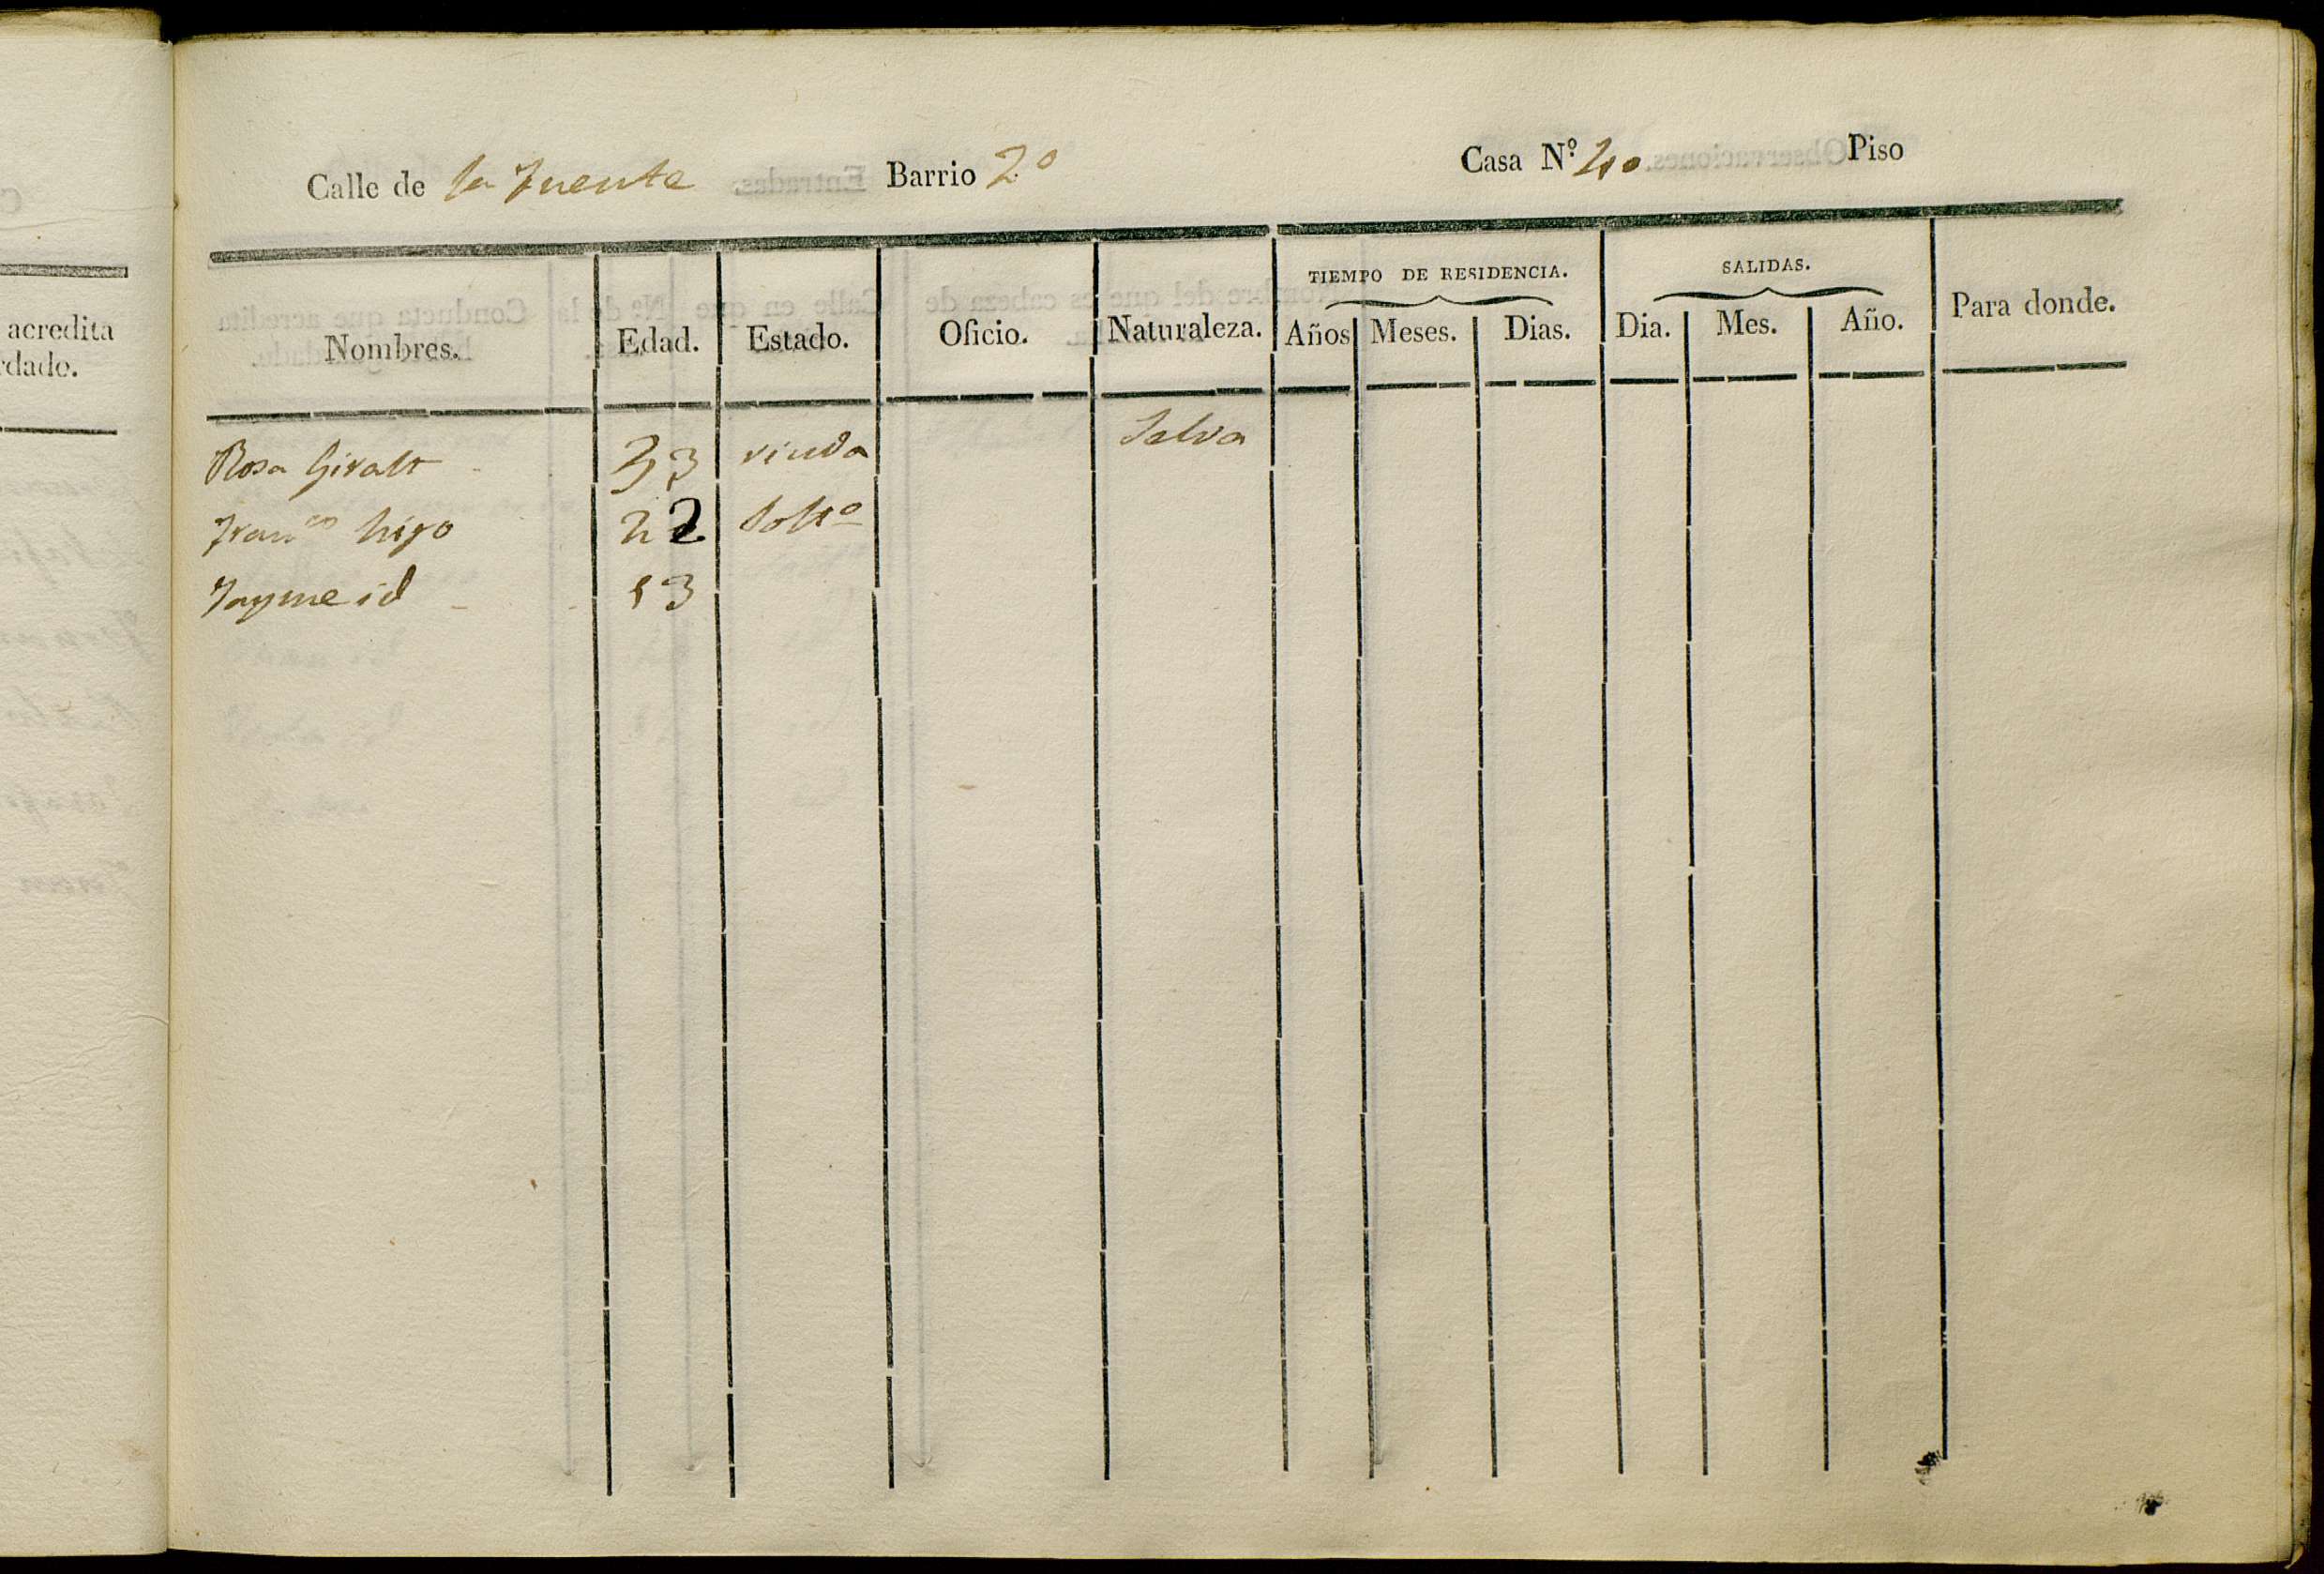 Calle de la Fuente Barrio 2º Casa Nº 40 Piso
TIEMPO DE RESIDENCIA. SALIDAS.
Nombres. Edad. Estado. Oficio. Naturaleza. Años Meses. Dias. Dia. Mes. Año. Para donde.
Rosa Giralt 53 viuda Selva
Franco hijo 22 Solto
Jayme id 13
acredita
dado.